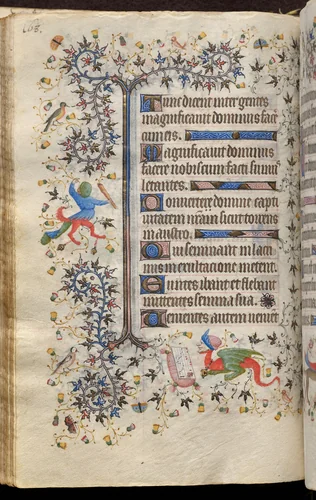 Tunc dicent inter gentes
magnificavit dominus fac
cum eis.
Magnificavit dominus
facere nobiscum facti sumus
letantes.
Convertere domine capti
vitatem nram sicut torrens
in austro.
Qui seminant in lacri
mis in exultatione metent.
Euntes ibant et flebant
mittentes semina sua.
Venientes autem venient